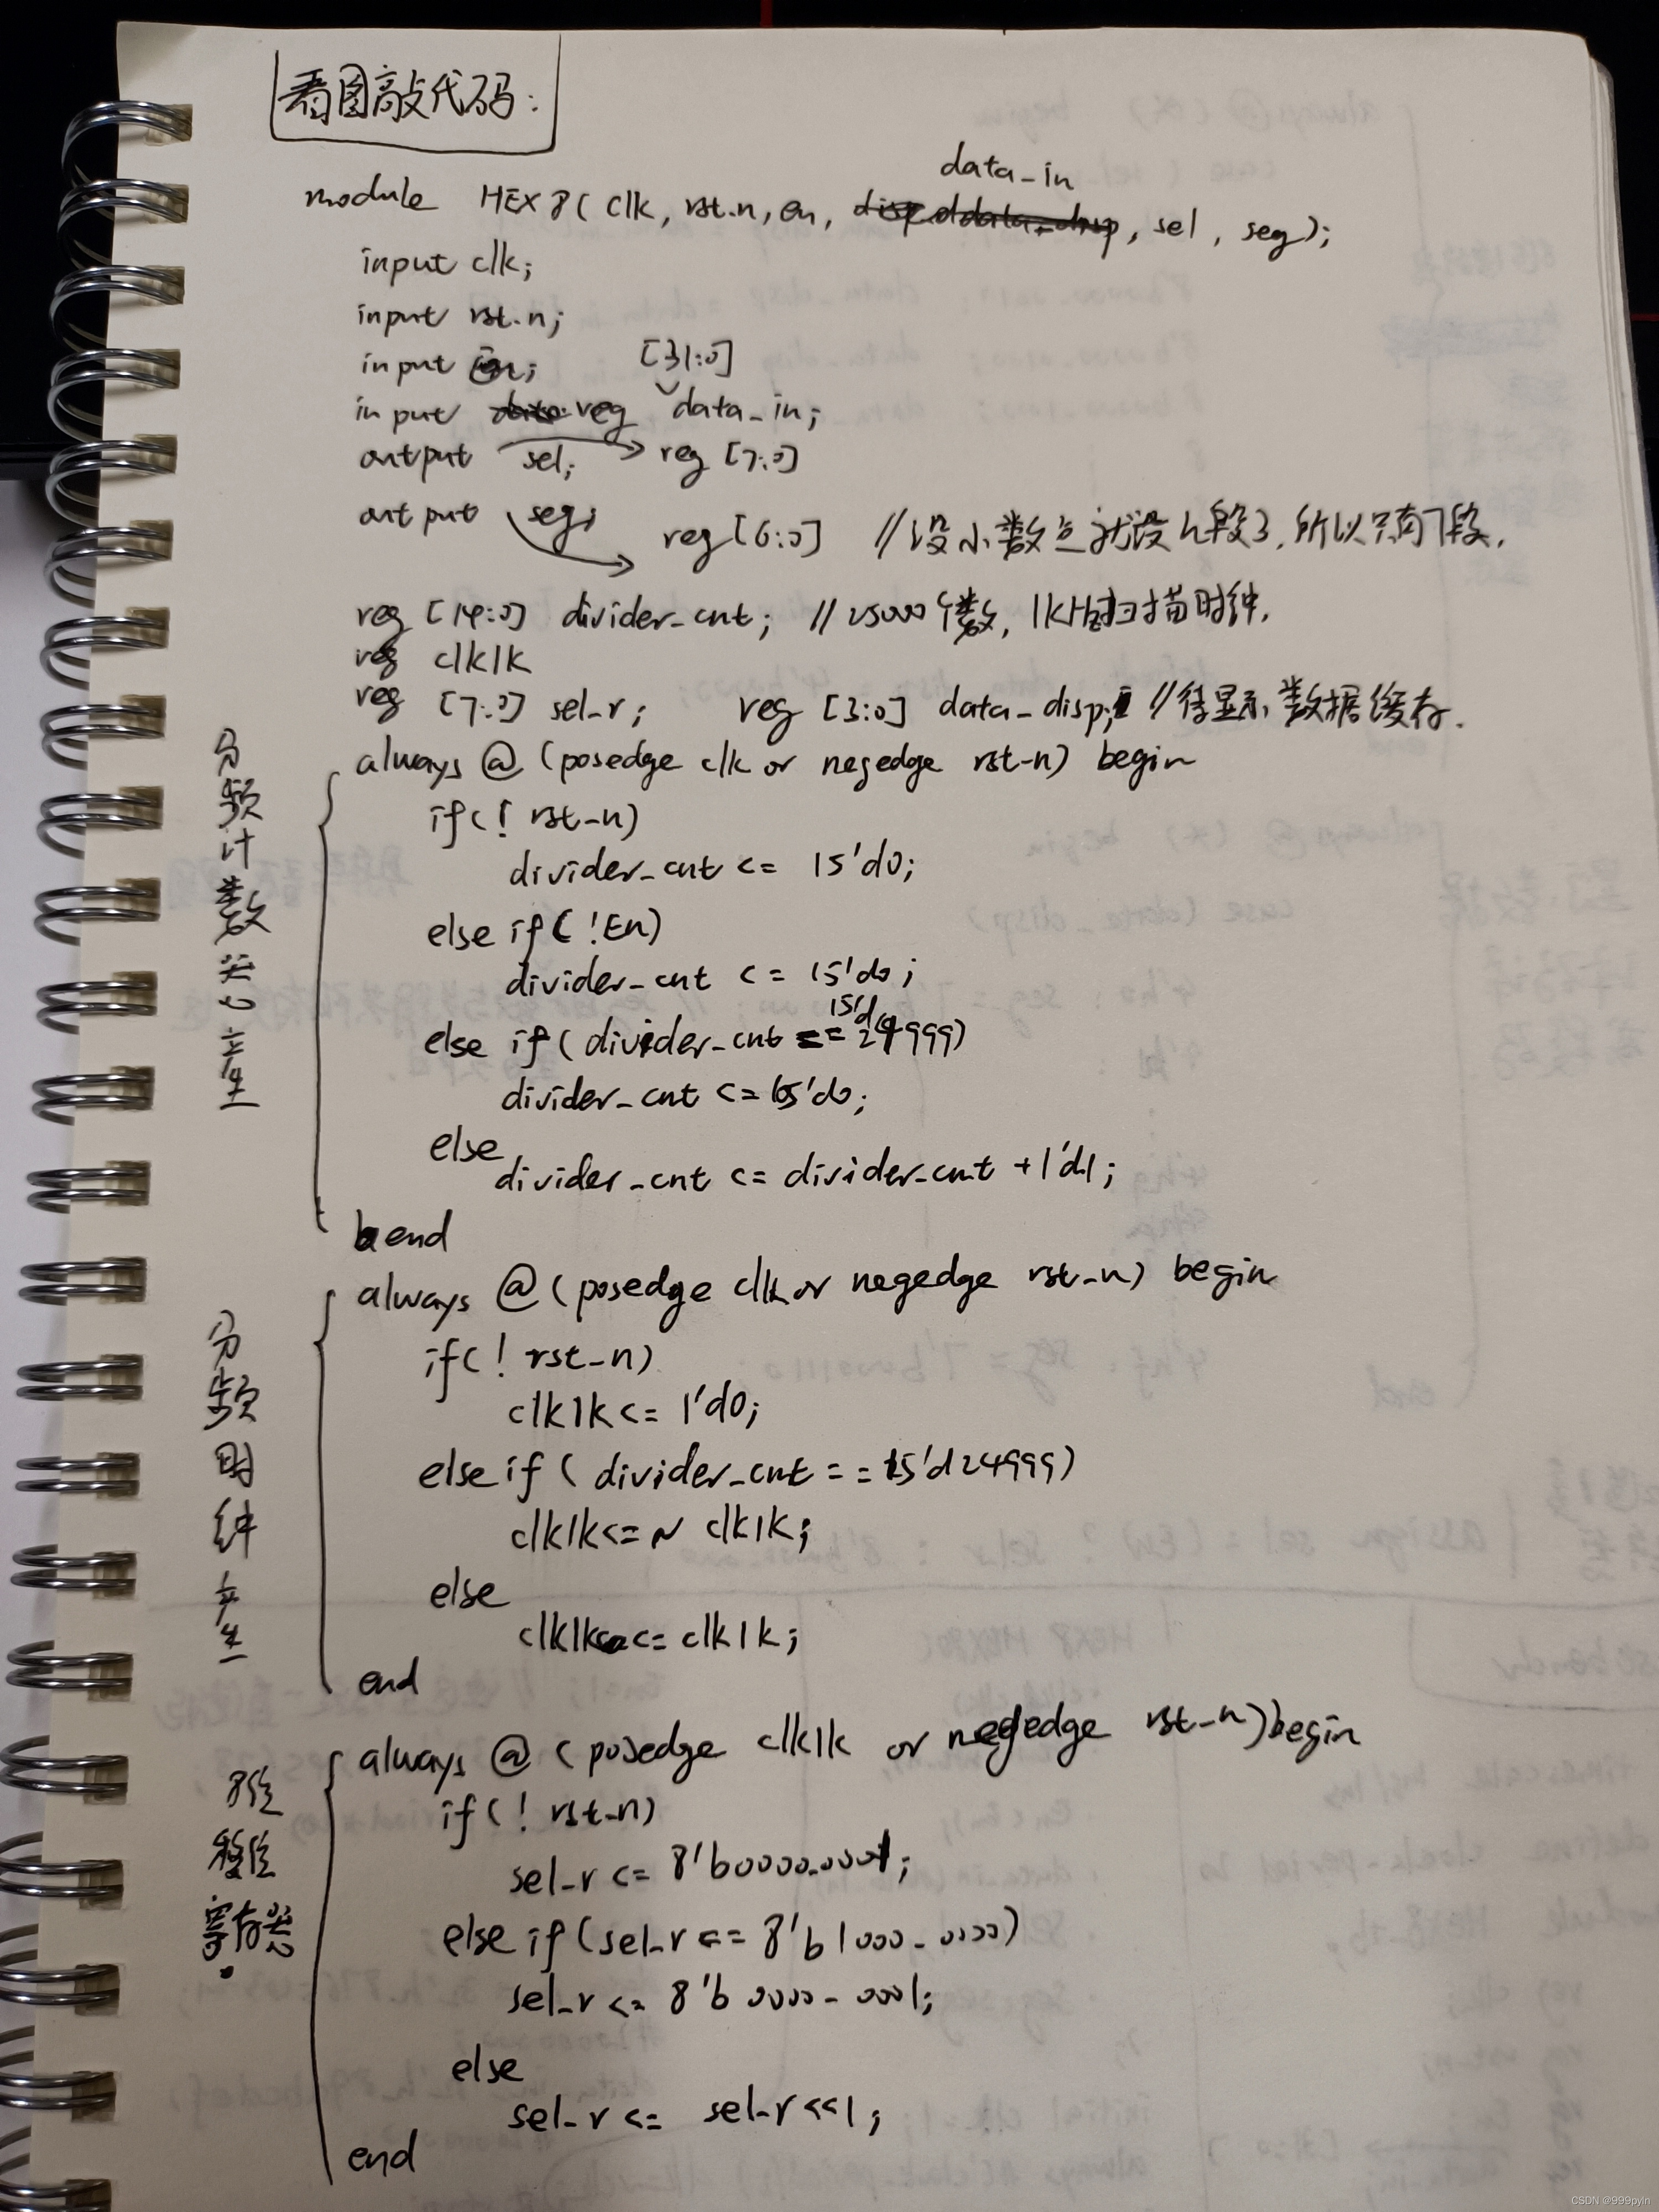 看图敲代码:
data_in
module HEX8( clk, rst_n, en, , sel, seg);
input clk;
input rst_n;
input en; [31:0]
input reg data_in;
output sel; reg [7:0]
output seg; reg [6:0] //没小数点就没h段了,所以只有7段.
reg [14:0] divider_cnt; //25000个数, 1kHz扫描时钟.
reg clk1k
reg [7:0] sel_r; reg [3:0] data_disp; //待显示数据缓存.
分频计数器产生
always @ (posedge clk or negedge rst_n) begin
if(! rst_n)
divider_cnt <= 15'd0;
else if( !En)
divider_cnt <= 15'd0;
else if(divider_cnt == 15'd24999)
divider_cnt <= 15'd0;
else
divider_cnt <= divider_cnt +1'd1;
end
分频时钟产生
always @ (posedge clk or negedge rst_n) begin
if(! rst_n)
clk1k<= 1'd0;
else if( divider_cnt == 15'd24999)
clk1k<=~ clk1k;
else
clk1k <= clk1k;
end
8位移位寄存器.
always @ ( posedge clk1k or negedge rst_n)begin
if(! rst_n)
sel_r <= 8'b0000_0001;
else if(sel_r == 8'b1000_0000)
sel_r <= 8'b 0000_0001;
else
sel_r <= sel_r<<1;
end
CSDN @999pyln